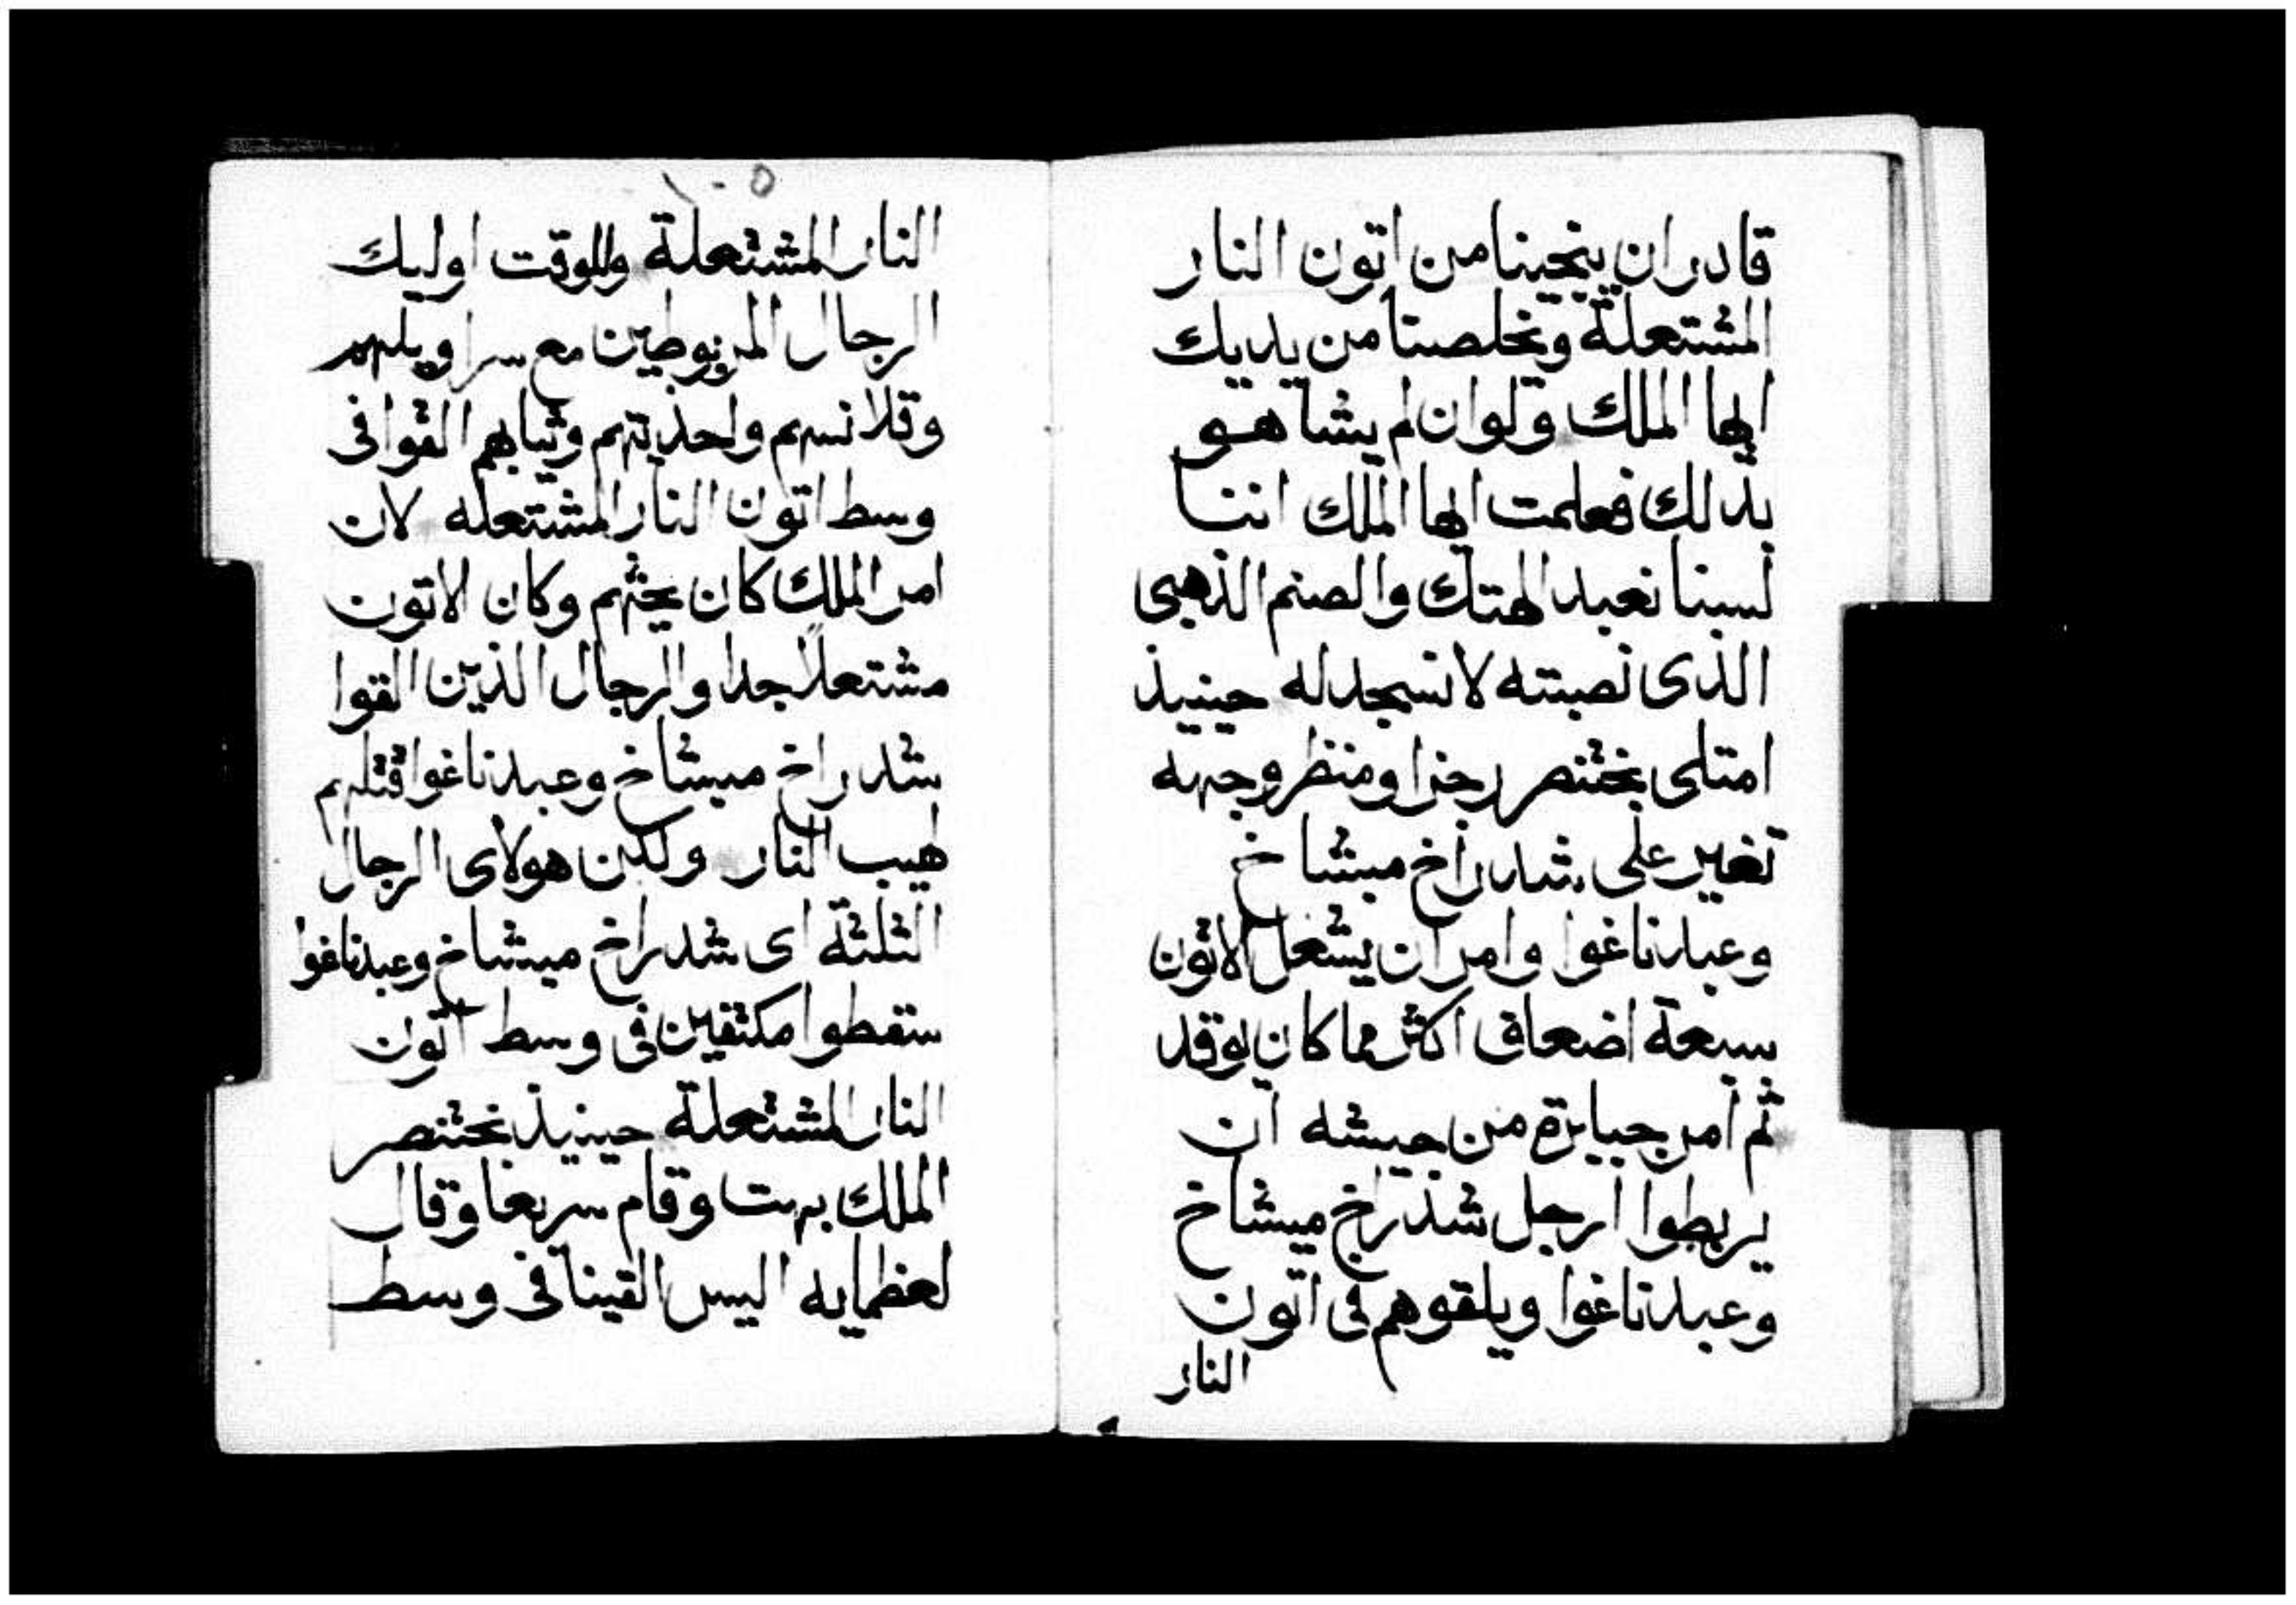 قادر ان ينجينا من اتون النار
المشتعلة ويخلصنا من يديك
ايها الملك ولو ان لم يشا هو
بذلك فعلمت ايها الملك اننا
لسنا نعبد الهتك والصنم الذهبى
الذى نصبته لا نسجد له حينيذ
امتلى بختنصر رجزا ومنظر وجهه
تغير على شدراخ ميشاخ
وعبدناغوا وامر ان يشعل الاتون
سبعة اضعاف اكثر مما كان يوقد
ثم امر جبابرة من جيشه ان
يربطوا ارجل شدراخ ميشاخ
وعبدناغوا ويلقوهم فى اتون
النار
١٠٥
النار المشتعلة وللوقت اوليك
الرجال المربوطين مع سراويلهم
وقلانسهم واحذيتهم وثيابهم القوا فى
وسط اتون النار المشتعله لان
امر الملك كان يحثهم وكان الاتون
مشتعلاً جدا والرجال الذين القوا
شدراخ ميشاخ وعبدناغوا قتلهم
لهيب النار ولكن هولاى الرجال
الثلثة اى شدراخ ميشاخ وعبدناغوا
سقطوا مكتفين فى وسط اتون
النار المشتعلة حينيذ بختنصر
الملك بهت وقام سريعا وقال
لعظمايه اليس القينا فى وسط